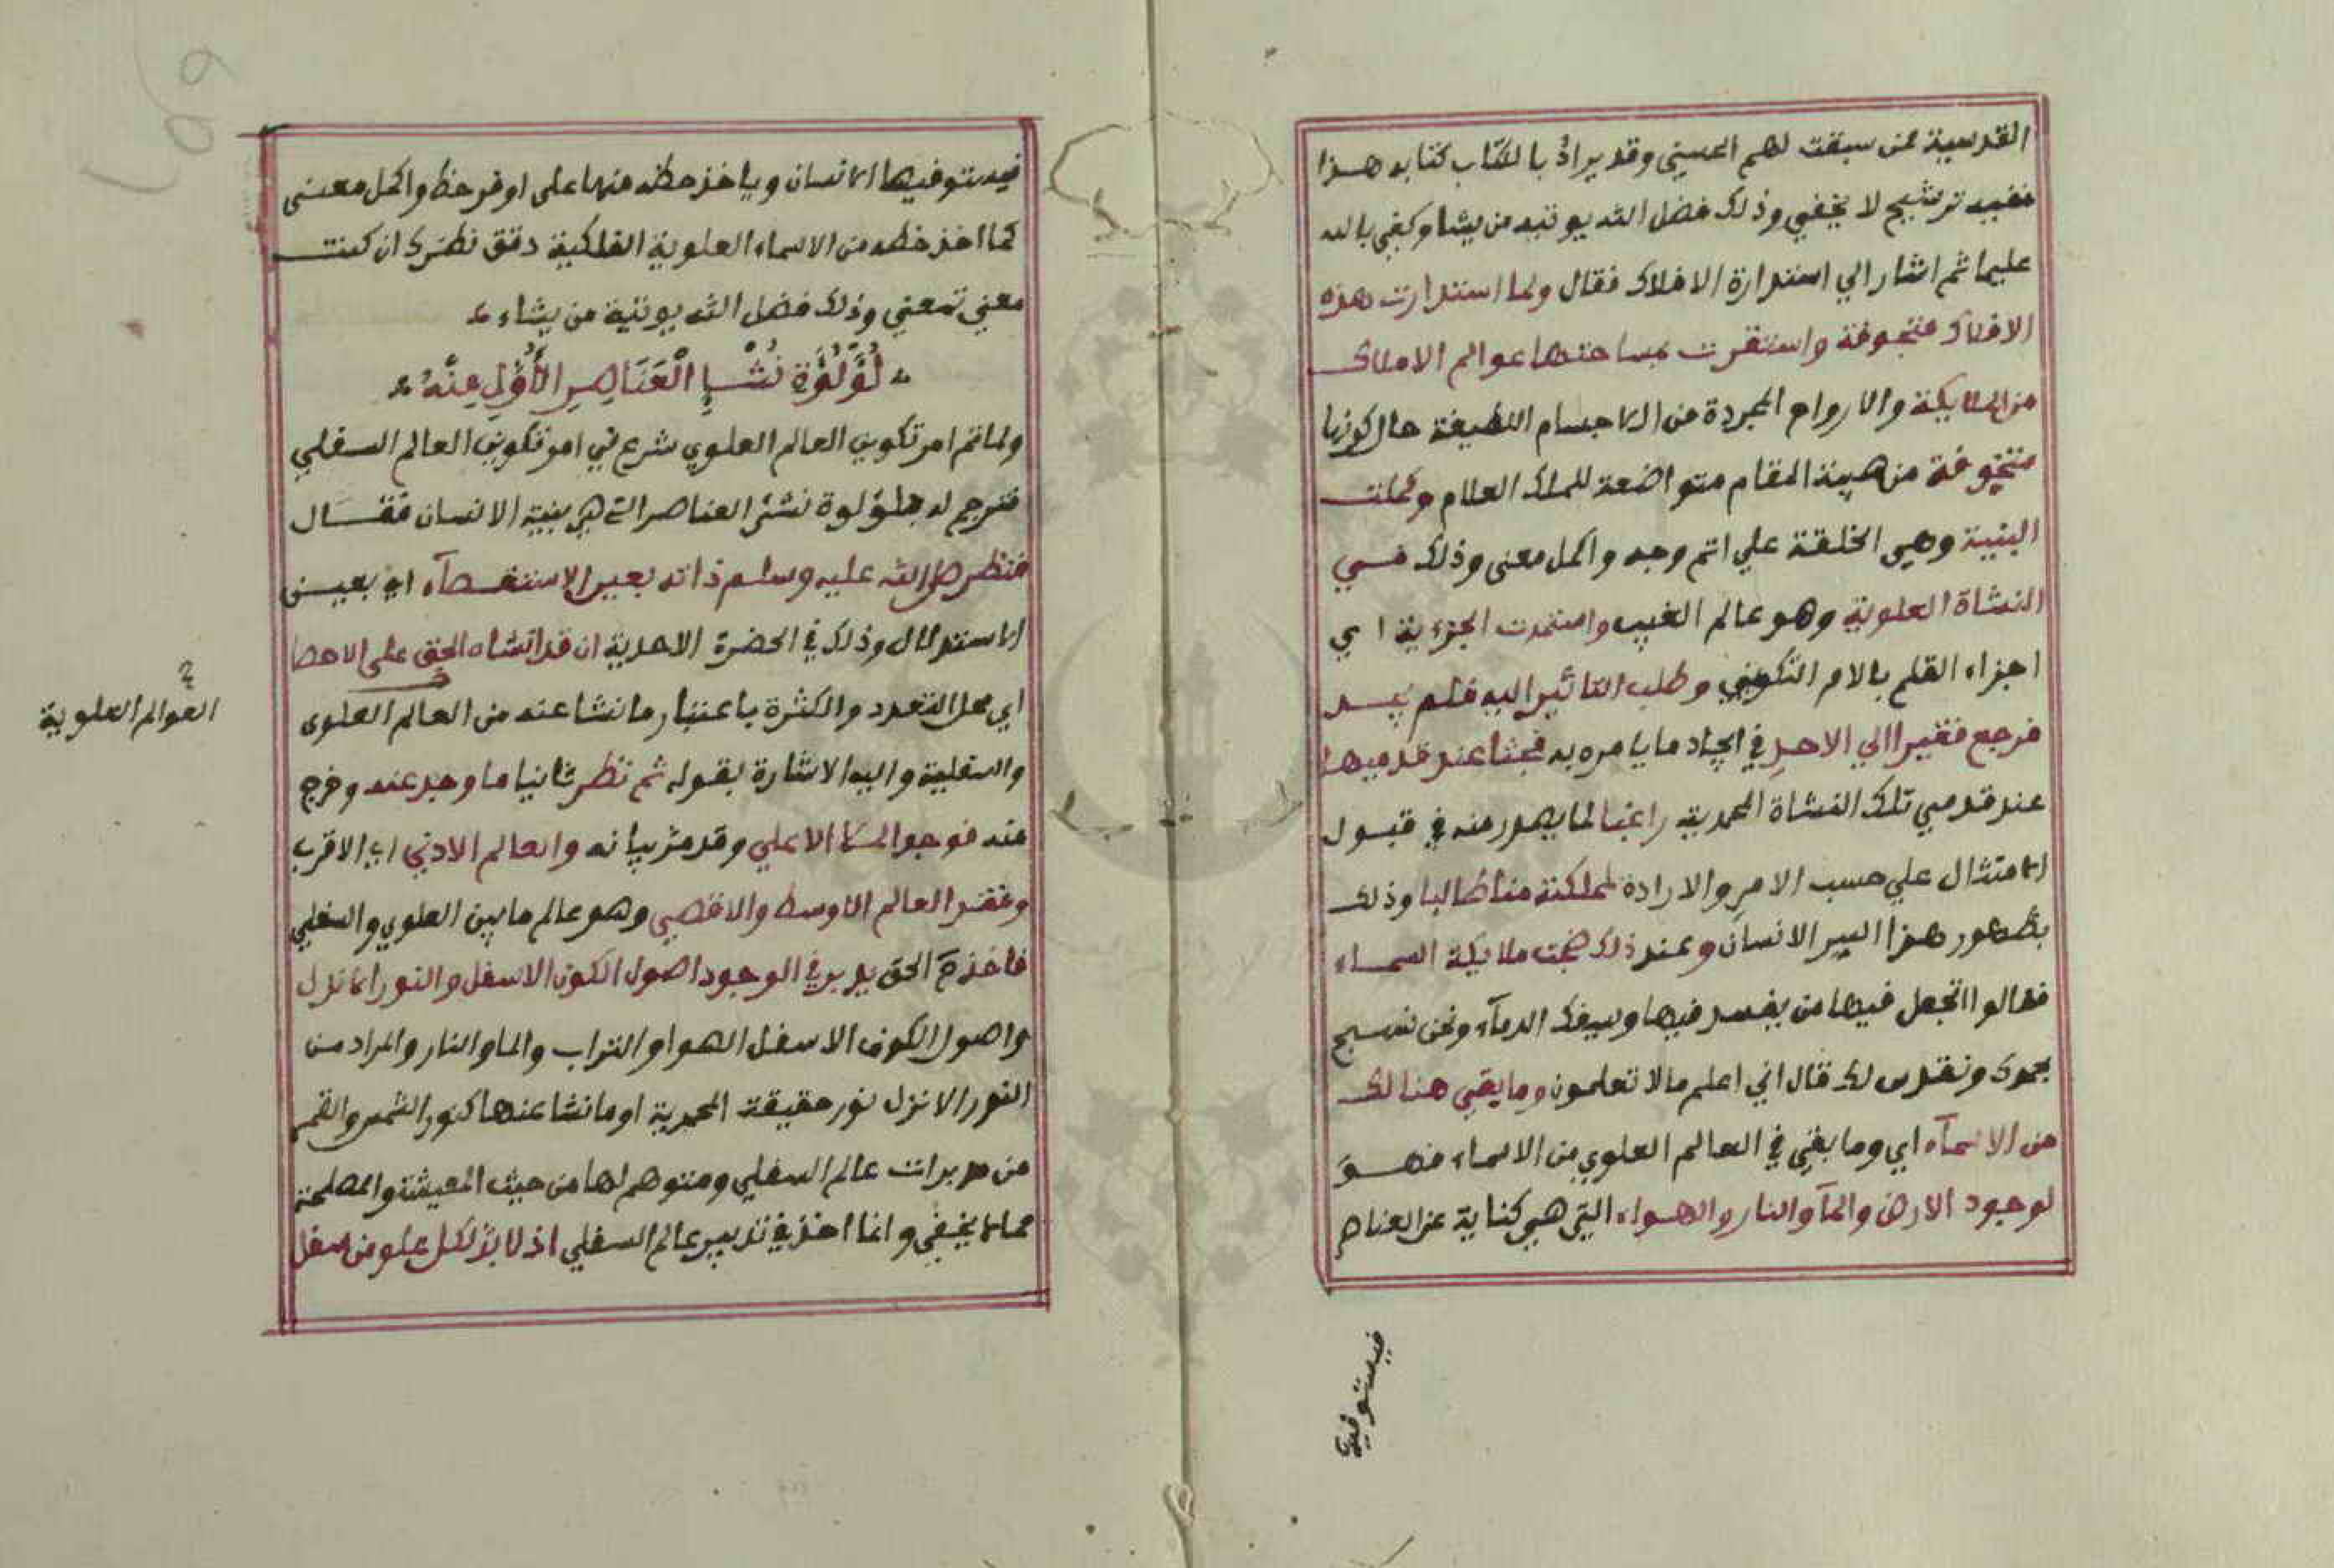 القدسية ممن سبقت لهم الحسيني وقد يراد بالكتاب كتابه هذا
ففيه ترشيح لا يخفي وذلك فضل الله يوتيه من يشا وكفي بالله
عليما ثم اشار الي استدارة الافلاك فقال ولما استدارت هذه
الافلاك متجوفة واستقرت بساحتها عوالم الاملاك
من الملايكة والارواح المجردة من الاجسام اللطيفة حال كونها
متخوفة من هيبة المقام متواضعة للملك العلام وكملت
البنية وهي الخلقة علي اتم وجه واكمل معنى وذلك في
النشاة العلوية وهو عالم الغيب واستمدت الجزءية اي
اجزاء القلم بالامر التكويني وطلب التاثير اليه فلم يجد
فرجع فقيرا الي الاحد في ايجاد ما يامره به فجثا عند قدميها
عند قدمي تلك النشاة المحمدية راغبا لما يصدر منه في قبول
الامتثال علي حسب الامر والارادة لمملكته مناطالبا وذلك
بظهور هذا السر الانسان وعند ذلك ضجت ملايكة السماء
فقالوا اتجعل فيها من يفسد فيها ويسفك الدمآء ونحن نسبح
بحمدك ونقدس لك قال اني اعلم مالا تعلمون وما بقي هنالك
من الاسمآء اي وما بقي في العالم العلوي من الاسماء فهو
لوجود الارض والمآ والنار والهواء التي هي كناية عن العناصر
فيستوفيها
فيستوفيها الانسان وياخذ حظه منها على اوفر حظ واكمل معنى
كما اخذ حظه من الاسماء العلوية الفلكية دقق نظرك ان كنت
معني تمعني وذلك فضل الله يوتية من يشاء
لُؤْلُؤَة نُشْـإِ الْعَنَاصِرِ الأُوَّلِ مِنْهُ
ولما تم امر تكوين العالم العلوي شرع في امر تكوين العالم السفلي
فترجم له بلؤلوة نشئ العناصر التي هي بنية الانسان فقال
فنظر صلى الله عليه وسلم ذاته بعين الاستقصآء اي بعين
الاستدلال وذلك في الحضرة الاحدية ان قد انشاه الحق على الاحصا
اي محل التعدد والكثرة باعتبار ما نشا عنه من العالم العلوى
والسفلية واليه الاشارة بقوله ثم نظر ثانيا ما وجد عنه وخرج
منه فوجد الملا الاعلي وقد مر بيانه والعالم الادني اي الاقرب
وفقد العالم الاوسط والاقصي وهو عالم ما بين العلوي والسفلي
فاخذه الحق يدبر في الوجود اصول الكون الاسفل والنور الانزل
واصول الكون الاسفل الهوا والتراب والما والنار والمراد من
النور الانزل نور حقيقته المحمدية او ما نشا عنها كنور الشمس والقمر
من مدبرات عالم السفلي ومتوهم لها من حيث المعيشة والمصلحة
مما لا يخفي وانما اخذ في تدبير عالم السفلي اذ لا بد لكل علو من سفل
العوالم العلوية